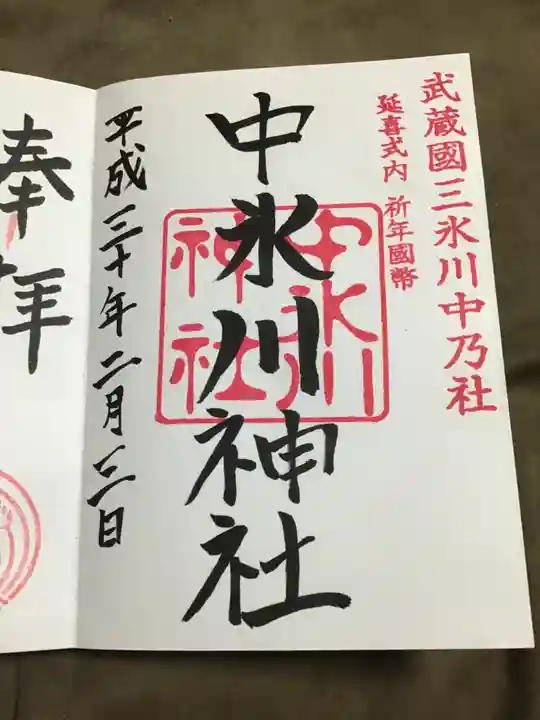 武蔵國三氷川中乃社
延喜式内 祈年國幣
中氷川神社
中氷川神社
平成三十年二月三日
奉拝